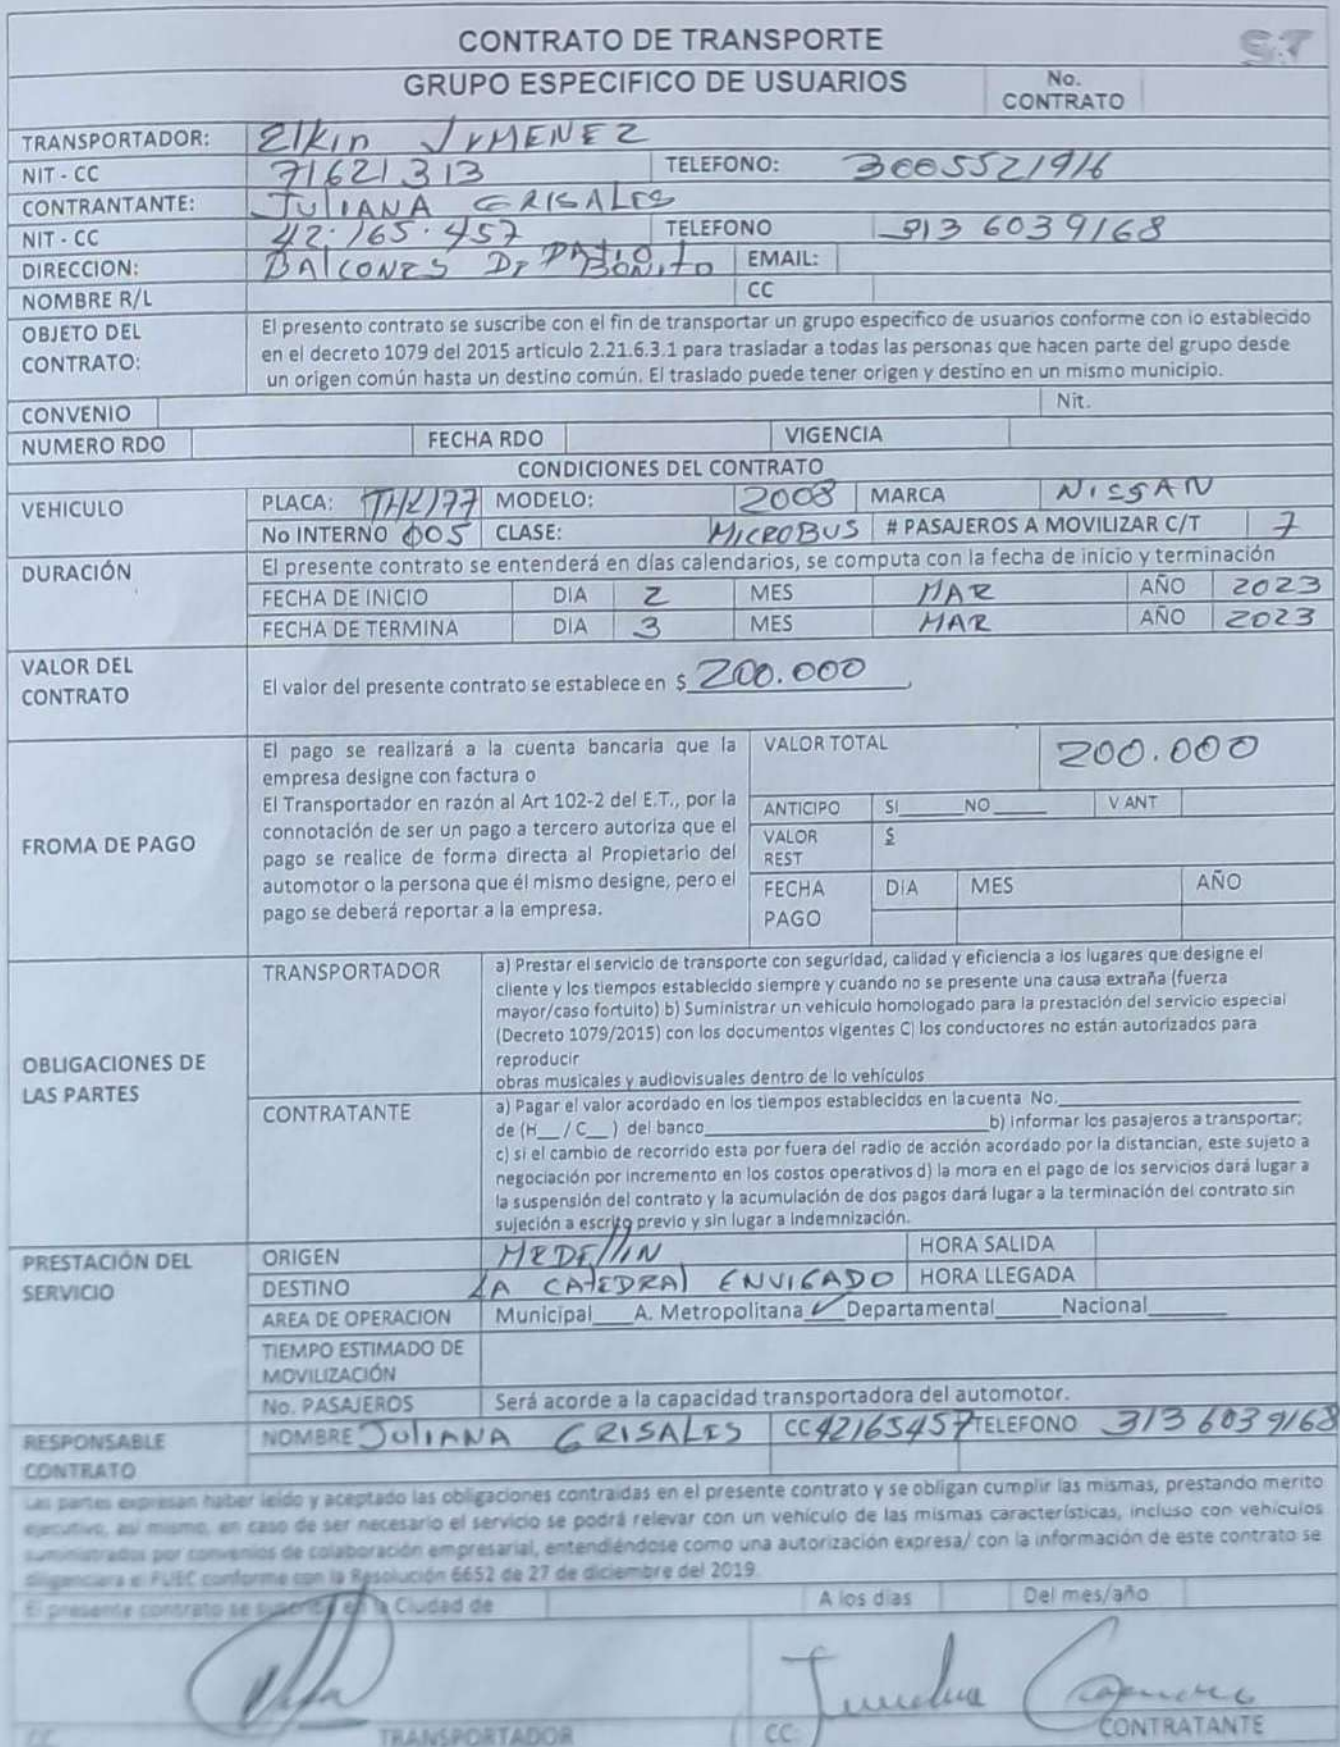 CONTRATO DE TRANSPORTE
S.T
GRUPO ESPECIFICO DE USUARIOS
No. CONTRATO
TRANSPORTADOR: Elkin JYMENEZ
NIT - CC 71621313 TELEFONO: 3005521916
CONTRANTANTE: JULIANA GRISALES
NIT - CC 42.165.457 TELEFONO 313 6039168
DIRECCION: BALCONES DE PATIO BONITO EMAIL:
NOMBRE R/L CC
OBJETO DEL CONTRATO:
El presento contrato se suscribe con el fin de transportar un grupo especifico de usuarios conforme con lo establecido
en el decreto 1079 del 2015 articulo 2.21.6.3.1 para trasladar a todas las personas que hacen parte del grupo desde
un origen común hasta un destino común. El traslado puede tener origen y destino en un mismo municipio.
CONVENIO Nit.
NUMERO RDO FECHA RDO VIGENCIA
CONDICIONES DEL CONTRATO
VEHICULO PLACA: THK177 MODELO: 2008 MARCA NISSAN
No INTERNO 005 CLASE: MICROBUS # PASAJEROS A MOVILIZAR C/T 7
DURACIÓN El presente contrato se entenderá en días calendarios, se computa con la fecha de inicio y terminación
FECHA DE INICIO DIA 2 MES MAR AÑO 2023
FECHA DE TERMINA DIA 3 MES MAR AÑO 2023
VALOR DEL CONTRATO
El valor del presente contrato se establece en $ 200.000
FROMA DE PAGO
El pago se realizará a la cuenta bancaria que la
empresa designe con factura o
El Transportador en razón al Art 102-2 del E.T., por la
connotación de ser un pago a tercero autoriza que el
pago se realice de forma directa al Propietario del
automotor o la persona que él mismo designe, pero el
pago se deberá reportar a la empresa.
VALOR TOTAL 200.000
ANTICIPO SI____NO____ V ANT
VALOR REST $
FECHA PAGO DIA MES AÑO
OBLIGACIONES DE LAS PARTES
TRANSPORTADOR
a) Prestar el servicio de transporte con seguridad, calidad y eficiencia a los lugares que designe el
cliente y los tiempos establecido siempre y cuando no se presente una causa extraña (fuerza
mayor/caso fortuito) b) Suministrar un vehiculo homologado para la prestación del servicio especial
(Decreto 1079/2015) con los documentos vigentes C) los conductores no están autorizados para
reproducir
obras musicales y audiovisuales dentro de lo vehículos
CONTRATANTE
a) Pagar el valor acordado en los tiempos establecidos en la cuenta No.____
de (H__/ C__ ) del banco____b) Informar los pasajeros a transportar;
c) si el cambio de recorrido esta por fuera del radio de acción acordado por la distancian, este sujeto a
negociación por incremento en los costos operativos d) la mora en el pago de los servicios dará lugar a
la suspensión del contrato y la acumulación de dos pagos dará lugar a la terminación del contrato sin
sujeción a escrito previo y sin lugar a indemnización.
PRESTACIÓN DEL SERVICIO
ORIGEN MEDELLIN HORA SALIDA
DESTINO LA CATEDRAL ENVIGADO HORA LLEGADA
AREA DE OPERACION Municipal____A. Metropolitana ✓ Departamental____Nacional____
TIEMPO ESTIMADO DE MOVILIZACIÓN
No. PASAJEROS Será acorde a la capacidad transportadora del automotor.
RESPONSABLE CONTRATO
NOMBRE JULIANA GRISALES CC 42165457 TELEFONO 313 6039168
Las partes expresan haber leído y aceptado las obligaciones contraidas en el presente contrato y se obligan cumplir las mismas, prestando merito
ejecutivo, así mismo, en caso de ser necesario el servicio se podrá relevar con un vehículo de las mismas características, incluso con vehículos
suministrados por convenios de colaboración empresarial, entendiéndose como una autorización expresa/ con la información de este contrato se
diligenciara el FUEC conforme con la Resolución 6652 de 27 de diciembre del 2019
El presente contrato se suscribe en la Ciudad de A los dias Del mes/año
CC TRANSPORTADOR
CC CONTRATANTE